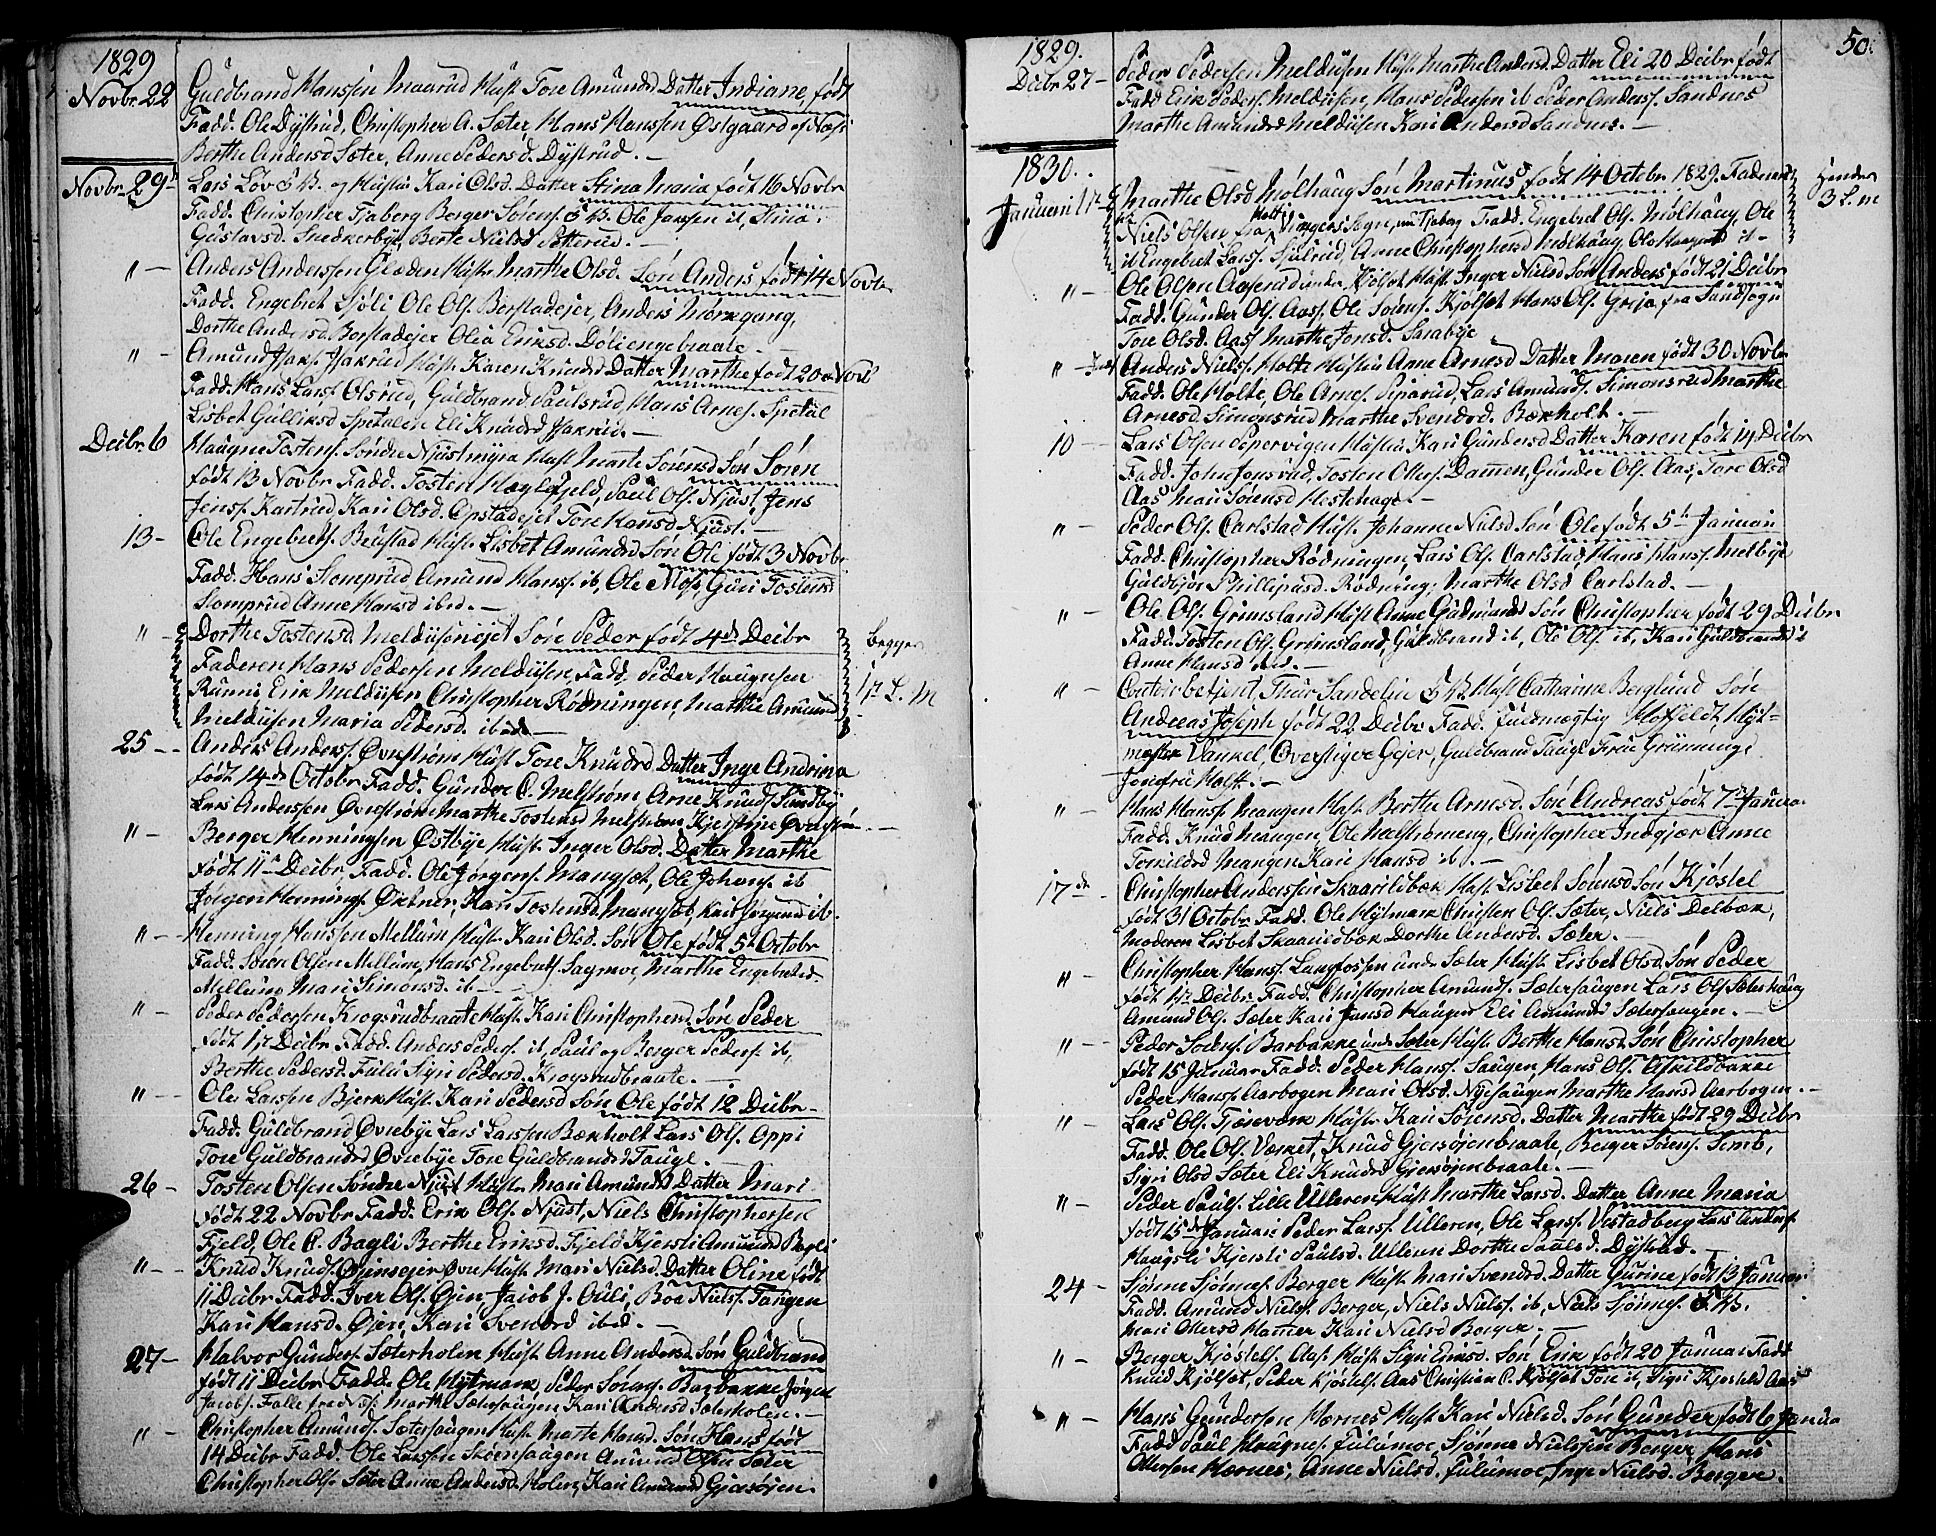 1829
Novbr 22
Guldbrand Hanssen Maarud Hust Tore Amundsd Datter Indiane født
Fadd. Ole Dystrud, Christopher A. Sæter Hans Hanssen Østgaard
Berthe Andersd Sæter, Anne Pedersd. Dystrud. —
Novbr 29
Lars Løv og Hustru Kari Olsd. Datter Stina Maria født 16 Novbr
Fadd. Christopher Tjaberg Berger Sørens. Ole Jansen Stina
Gustavsd. Snekkerbye, Berte Nielsd Sætterud. —
" — Anders Anderssen Glæden Hust. Marthe Olsd. Søn Anders født 14 Novbr
Fadd. Engebret Sjøli Ole Ols. Borstadejer, Anders Mørkgang,
Dorthe Andersd. Borstadejer Olia Eriksd. Døliengebraate. —
" — Amund Hust. Karen Knudsd Datter Marthe født 20 Novb
Fadd. Hans Larss. Olsrud, Guldbrand Paulsrud, Hans Arnes. Spetal
Lisbet Gulliksd Spetalen Eli Knudsd —
Decbr 6
Haagne Tostens. Søndre Njustmyra Hust Marte Sørensd Søn Søren
født 13 Novbr Fadd. Tosten Hæglefjeld, Paul Ols. Njust, Jens
Jenss. Kartrud Kari Olsd. Opstadejet Tore Hansd Njust. —
13 — Ole Engebrets. Beustad Hust. Lisbet Amundsd Søn Ole født 3 Novbr.
Fadd. Hans Slomprud Amund Hanss. ib, Ole Moss, Guri Tostensd
Slomprud Anne Hansd ibd. —
" — Dorthe Tostensd. Meldusenejet Søn Peder født 4de Decbr
Faderen Hans Pedersen Meldusen, Fadd. Peder Haagnsen
Runni Erik Meldusen Christopher Rødningen, Marthe Amund
Meldusen Maria Pedersd. ibd. —
Begges
1st L. M
25 — Anders Anderss. Øvrestrøm Hust Tore Knudsd Datter Inge Andrina
født 14de Octobr Fadd. Gunder O. Melstrøm Arne Knuds. Sundby
Lars Anderssen Øvrestrøm Marthe Tostensd Melstrøm Kjerstine Øvrestrøm. —
" — Berger Henningsen Østbye Hust. Inger Olsd. Datter Marthe
født 11te Decbr. Fadd. Ole Jørgens. Mangset, Ole Johans. ib
Jørgen Hennings. Østner, Kari Tostensd. Mangset, Kari Jørgensd ib.
" — Henning Hanssen Mellum Hust. Kari Olsd. Søn Ole født 5te Octobr
Fadd. Søren Olsen Mellum, Hans Engebrets. Sagmoe, Marthe Engebretsd.
Mellum Mari Simonsd. ib —
" — Peder Pedersen Krogsrudbraate Hust. Kari Christophersd. Søn Peder
født 1st Decbr. Fadd. Anders Peders. ib, Paul og Berger Peders. ib,
Berthe Pedersd. Fulu Sigri Pedersd. Krogsrudbraate. —
" — Ole Larssen Bjerk Hust. Kari Pedersd Søn Ole født 12 Decbr —
Fadd. Guldbrand Øvrebye Lars Larssen Bækholt Lars Ols. Oppi
Tore Guldbrandsd Øvrebye Tore Guldbrandsd Taugl. —
26 — Tosten Olsen Søndre Njust Hustr. Mari Amundsd Datter Mari
født 22 Novbr Fadd. Erik Ols. Njust, Niels Christophersen
Fjeld, Ole O. Bagli Berthe Eriksd. Fjeld Kjersti Amundsd Bagli
" — Knud Knuds. Øjenseje Hust. Mari Nielsd. Datter Oline født
11 Decbr Fadd. Iver Ols. Øien Jacob J. Ouli, Boa Niels. Tangen
Kari Hansd. Øjen, Kari Svendsd ibd. —
27 — Halvor Gunders. Sæterholen Hust Anne Andersd. Søn Guldbrand
født 11 Decbr Fadd. Ole Hytmark, Peder Sørens. Barbakke Jørgen
Jacobs. Falle Marthe Sætersaugen Kari Andersd Sæterholen. —
" — Christopher Amunds. Sætersaugen Hust Marte Hansd. Søn Hans født
14 Decbr Fadd. Ole Larssen Skeensaugen Amund Olsen Sæter
Christopher Ols. Sæter Anne Andersd. Holen, Kari Amundsd Gjersøjen.
50.
1829.
Decbr 27 — Peder Pedersen Meldusen Hust. Marthe Andersd. Datter Eli 20 Decbr født
Fadd Erik Peders. Meldusen, Hans Pedersen ib Peder Anders. Sandnes
Marthe Amundsd Meldusen Kari Andersd Sandnes. —
1830.
Januari 1st
Marthe Olsd Mølhaug Søn Martinus født 14 Octobr. 1829. Faderen
Niels Olsen fra Holt Vingers Sogn, nu Tjaberg Fadd. Engebret Ols. Mølhaug, Ole
ib Engebret Larss. Sjulrud, Anne Christophersd Mølhaug, Ole ib —
Hendes
3 L. m
" — Ole Olsen Aasen under Kjølset Hust Inger Nielsd Søn Anders født 21 Decbr
Fadd. Gunder Ols. Aas. Ole Sørens. Kjølset Hans Ols. fra Sandsogn
Tore Olsd. Aas Marthe Jonsd. Sarabye
" — Anders Niels. Holte Hustru Anne Arnesd Datter Maren født 30 Novbr
Fadd. Ole Holte, Ole Arnes. Piparud, Lars Amunds. Simonsrud Marthe
Arnesd. Simonsrud Marthe Svendsd. Bækholt. —
10 — Lars Olsen Pepervigen Hustru Kari Gundersd Datter Karen født 14 Decbr
Fadd. John Jonsrud, Tosten Otters. Dammen, Gunder Ols. Aas, Tore Olsd
Aas Mari Sørensd Hestehage —
" — Peder Ols. Carlstad Hust. Johanne Nielsd Søn Ole født 5te Januari
Fadd. Christopher Rødningen, Lars Ols. Carlstad, Hans Hans. Melbye
Guldbjør Phillipsd. Rødning, Marthe Olsd Carlstad. —
" — Ole Ols. Grimsland Hust Anne Gudmunds Søn Christopher født 29 Decbr
Fadd. Tosten Ols. Grimsland, Guldbrand ib, Ole Ols. ib, Kari Guldbrandsd ib
Anne Hansd ibd. —
" Contoirbetjent Thur Sandelin Hust Catharine Berglund Søn
Andreas Joseph født 22 Decbr. Fadd. Fuldmægtig Hoffeldt, Hyt-
mester Vankel, Overstiger Gejer, Guldbrand Taugl Frue Grünning
Jomfru Holst. —
" Hans Hanss. Mangen Hust. Berthe Arnesd. Søn Andreas født 7de Janua.
Fadd. Knud Mangen Ole Christopher Indgjær Anne
Torkildsd Mangen Kari Hansd ib. —
17de — Christopher Anderssen Skaarildbæk Hust Lisbet Sørensd Søn Kjøstel
født 31 Octobr. Fadd. Ole Hytmark Christen Ols. Sæter, Niels Delbæk,
Moderen Lisbet Skaarildbæk Dorthe Andersd. Sæter. —
" Christopher Hans. Langfossen under Sæter Hust Lisbet Olsd. Søn Peder
født 1st Decbr. Fadd. Christopher Amunds. Sætersaugen Lars Ols Sæterhaug
Amund Ols. Sæter Kari Jansd Haugen Eli Amundsd Sætersaugen. —
" — Peder Sørens. Barbakke under Sæter Hust. Berthe Hansd. Søn Christopher
født 15 Januar Fadd. Peder Hans. Saugen, Hans Ols. Askilsbakke
Peder Hans. Aarbogen Mari Olsd. Nyesaugen Marthe Hansd Aarbogen. —
" — Lars Ols. Tjæsevæk Hustr. Kari Sørensd. Datter Marthe født 29 Decbr
Fadd. Ole Ols. Værket, Knud Gjersøjenbraate, Berger Sørens. Simb,
Sigri Olsd Sæter Eli Knudsd Gjersøjenbraate. —
" — Peder Pauls. Lille Ulleren Hust Marthe Larsd. Datter Anne Maria
født 15de Januari Peder Larss. Ulleren, Ole Larss. Vestadberg Lars Anders.
Haugsli Kjersti Paulsd. Ulleren Dorthe Paulsd. Dystrud. —
24 — Sjønne Sjønnes. Berger Hust Mari Svendsd. Datter Gurine født 13 Januar
Fadd. Amund Niels. Berger, Niels Niels. ib, Niels Sjønnes.
Mari Ottersd Hamer Kari Nielsd Berger. —
" — Berger Kjøstels. Aas. Hust. Sigri Eriksd. Søn Erik født 20 Januar Fadd
Knud Kjølset, Peder Kjøstels. Aas Christian P. Kjølset Tore ib, Sigri Kjøstelsd Aas
" — Hans Gundersen Hærnes Hust Kari Nielsd. Søn Gunder født 6 Janua
Fadd Paul Haagnes. Fulumoe, Sjønne Nielssen Berger, Hans
Ottersen Hærnes, Anne Nielsd. Fulumoe Inge Nielsd. Berger.